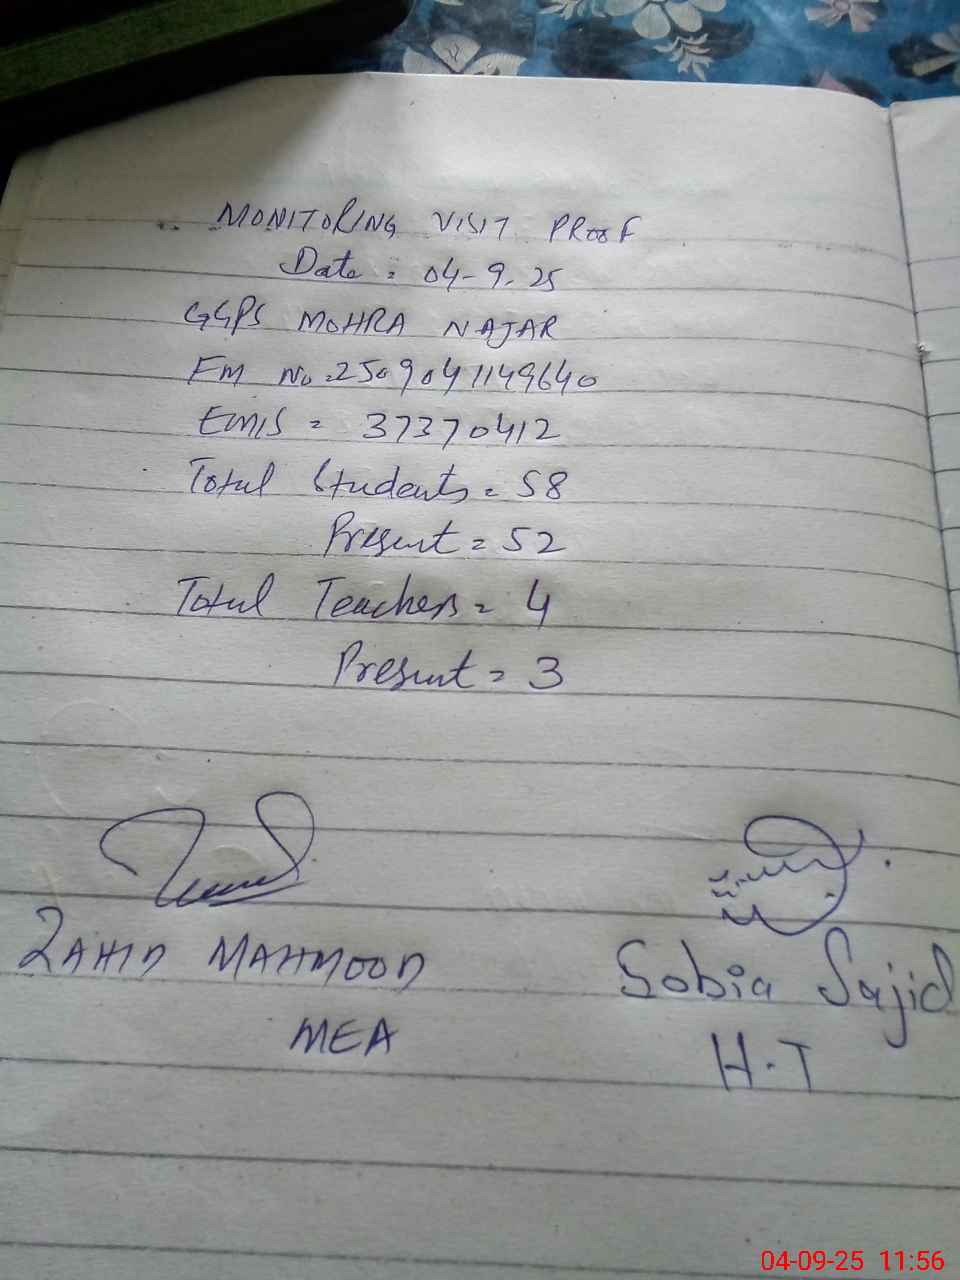 MONITORING VISIT PROOF
Date = 04-9-25
GGPS MOHRA NAJAR
FM No.2509041149640
EMIS = 37370412
Total Students = 58
Present = 52
Total Teachers = 4
Present = 3
ZAHID MAHMOOD
MEA
Sobia Sajid
H.T
04-09-25 11:56